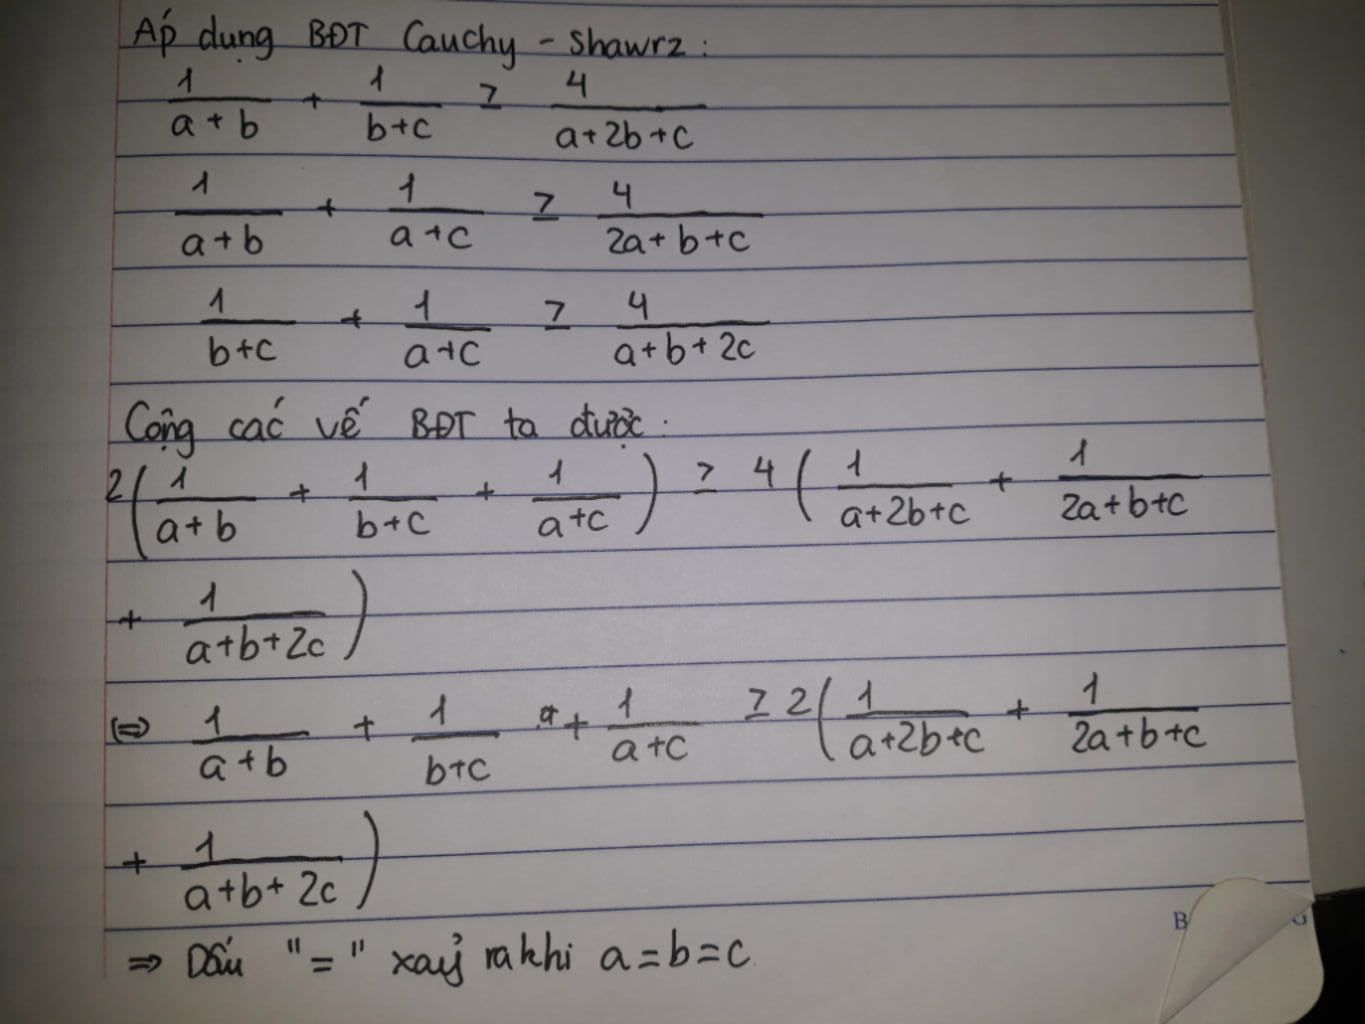 Áp dụng BĐT Cauchy - Shawrz:
1/(a+b) + 1/(b+c) ≥ 4/(a+2b+c)
1/(a+b) + 1/(a+c) ≥ 4/(2a+b+c)
1/(b+c) + 1/(a+c) ≥ 4/(a+b+2c)
Cộng các vế BĐT ta được:
2(1/(a+b) + 1/(b+c) + 1/(a+c)) ≥ 4(1/(a+2b+c) + 1/(2a+b+c)
+ 1/(a+b+2c))
⇔ 1/(a+b) + 1/(b+c) + 1/(a+c) ≥ 2(1/(a+2b+c) + 1/(2a+b+c)
+ 1/(a+b+2c))
⇒ Dấu "=" xảy ra khi a=b=c